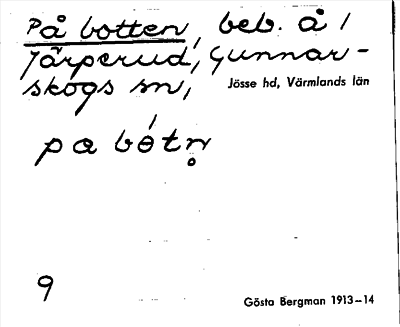 På botten, beb. å /
Järperud, Gunnar-
skogs sn,
Jösse hd, Värmlands län
pa bótn̥
9
Gösta Bergman 1913–14